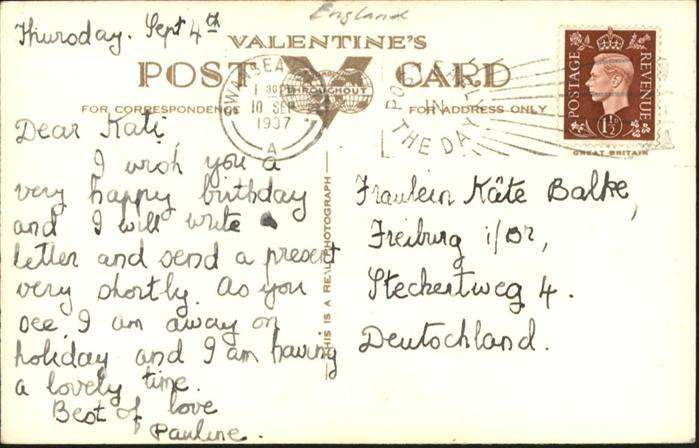 England
Thursday. Sept 4th
VALENTINE'S
POST CARD
FOR CORRESPONDENCE
FOR ADDRESS ONLY
THROUGHOUT
SWANSEA
1 30 PM
10 SEP
1937
A
IN
THE DAY
POSTAGE
REVENUE
1½
GREAT BRITAIN
THIS IS A REAL PHOTOGRAPH
Dear Kati,
I wish you a
very happy birthday
and I will write a
letter and send a present
very shortly. As you
see, I am away on
holiday and I am having
a lovely time.
Best of love
Pauline.
Fraulein Käte Balke,
Freiburg i/Br,
Steckertweg 4.
Deutochland.